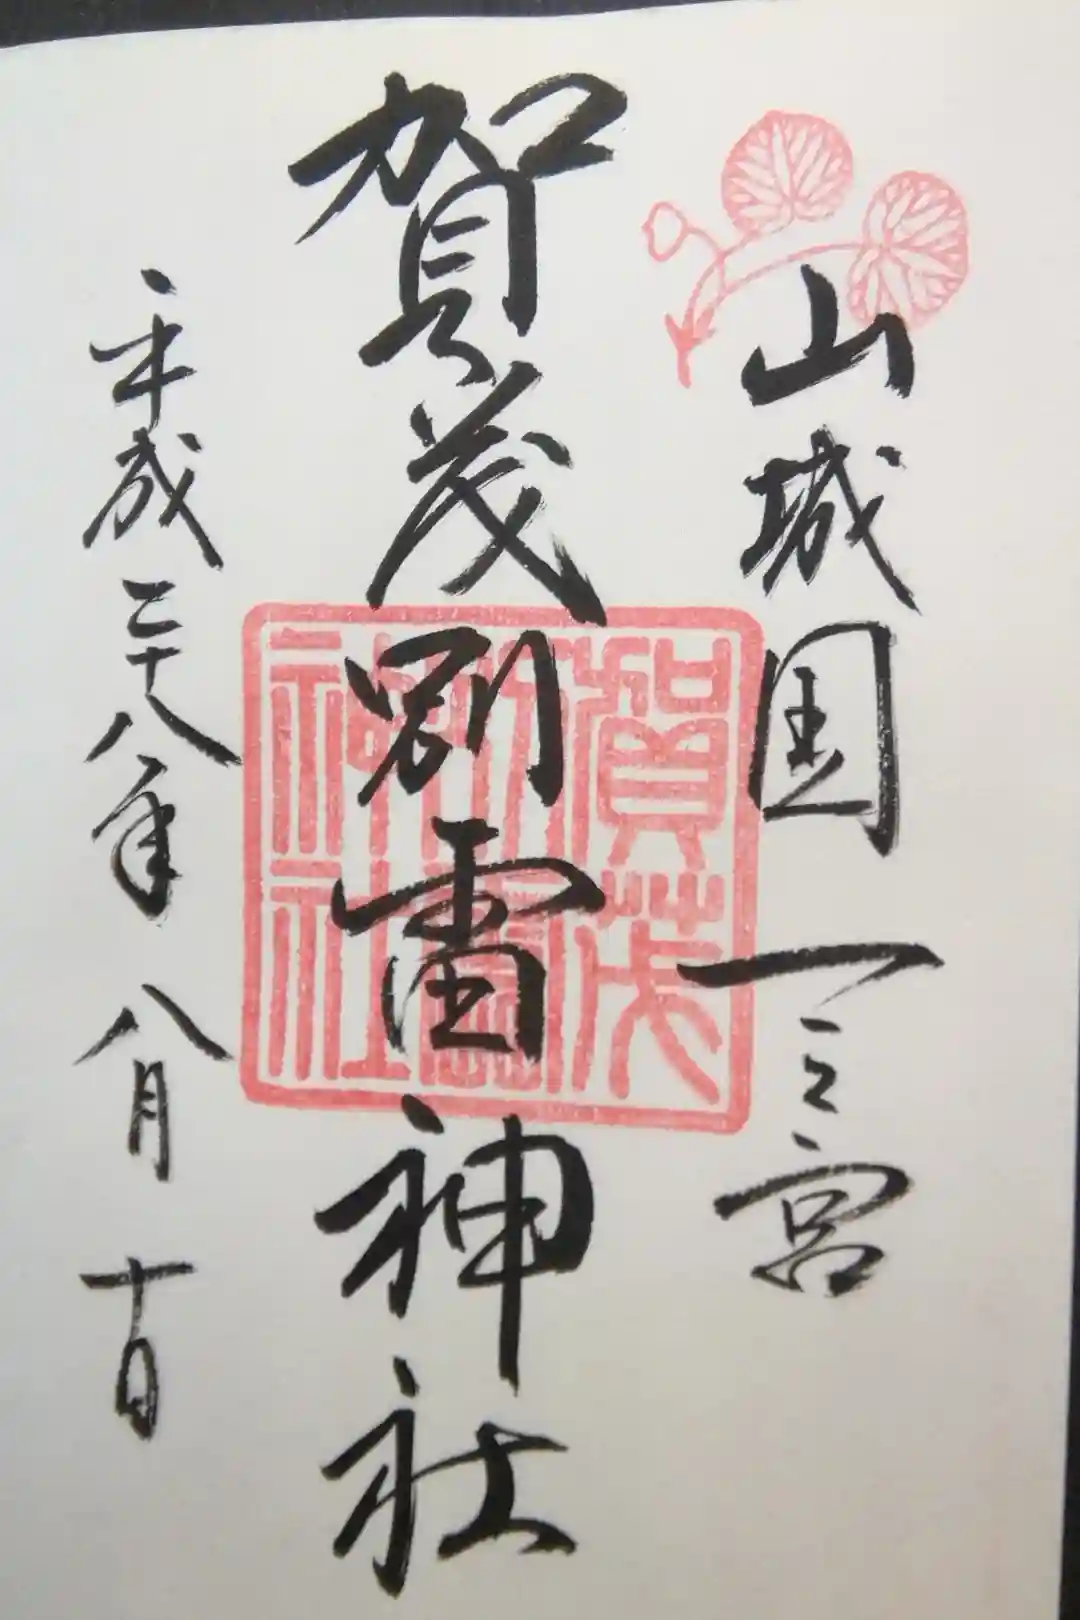 山城国一之宮
賀茂別雷神社
平成二十八年八月十日
賀茂
別雷
神社